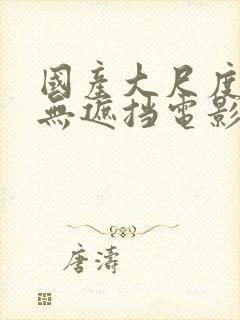 國產大尺度
無遮挡電影
唐濤